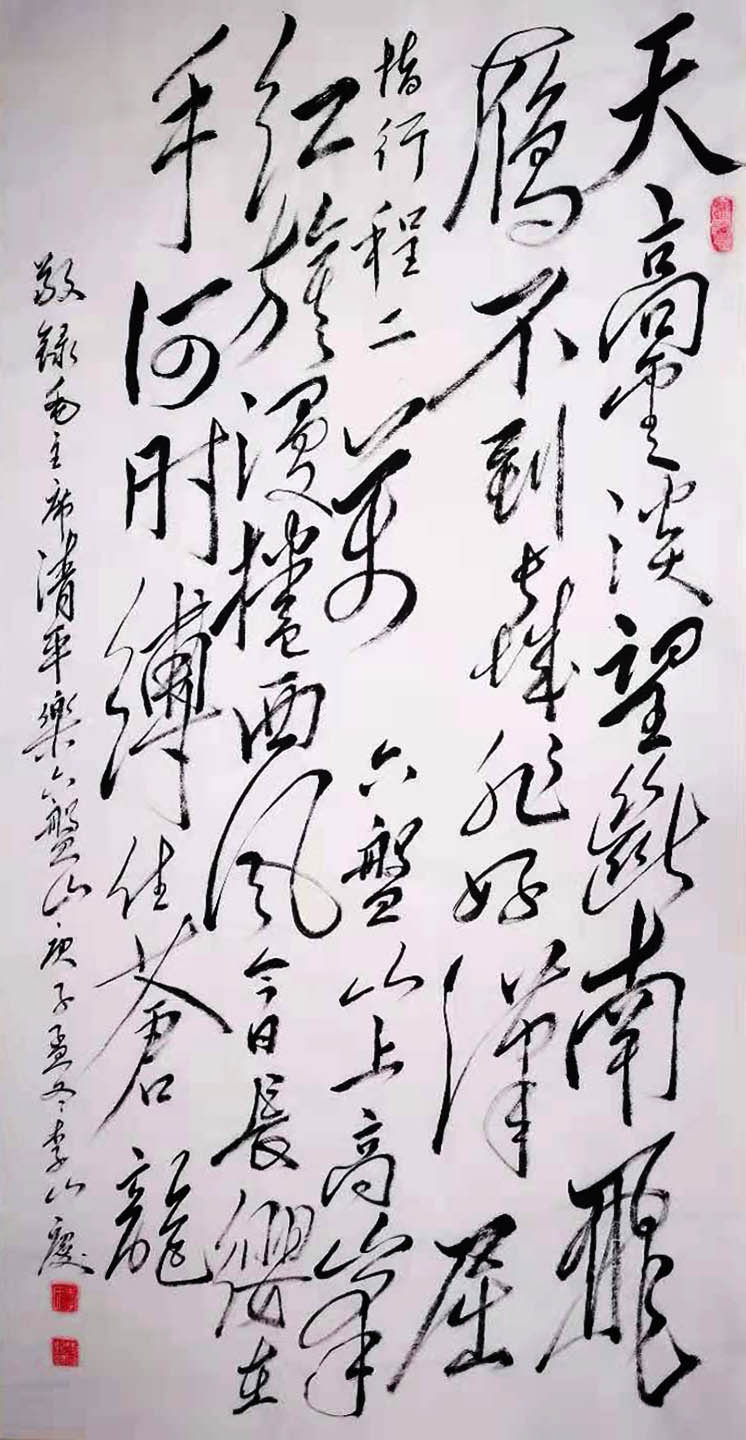 天高云淡望断南飛
雁不到長城非好漢屈
指行程二萬六盤山上高峰
红旗漫捲西风今日長纓在
手何时縛住蒼龍
敬録毛主席清平樂六盤山庚子孟冬李山慶